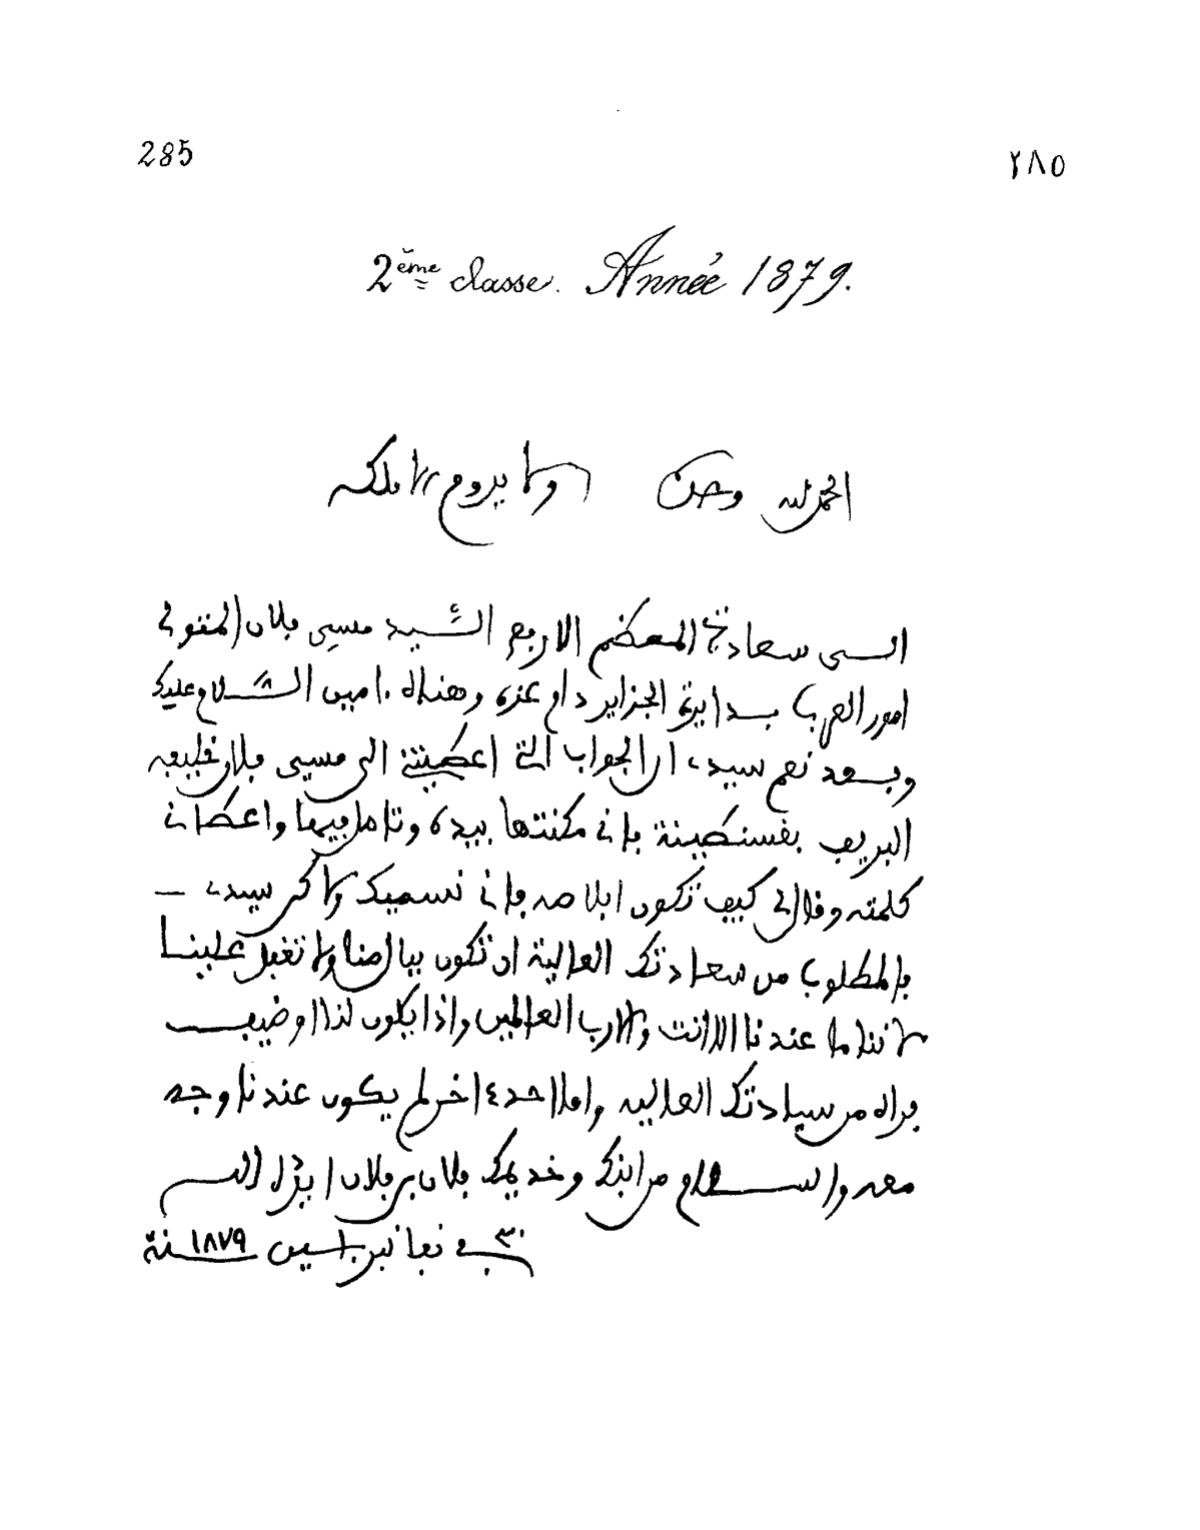 285
٢٨٥
2ème classe. Année 1879.
الحمد لله وحده ولا يدوم الا ملكه
الى سعادة المعظم الارفع السيد مسي فلان المتولي
امور العرب بدايرة الجزاير دام عزه وهناه ءامين السلام عليك
وبعد نعم سيدي ان الجواب التي اعطيتني الى مسي فلان خليفة
البريف بقسنطينة فاني مكنتها بيده وتامل فيها واعطاني
كلمته وقال لي كيف تكون ابلاصه فاني نسميك ولاكن سيدي
فالمطلوب من سعادتك العالية ان تكون بيا لضنا ولا تغفل علينا
لاننا ما عندنا الا انت والا رب العالمين واذا يكون لنا اوضيف
فراه من سيادتك العاليه واما احدا اخر لم يكون عندنا وجه
معه والسلام من ابنك وخديمك فلان بن فلان
في سنة ١٨٧٩